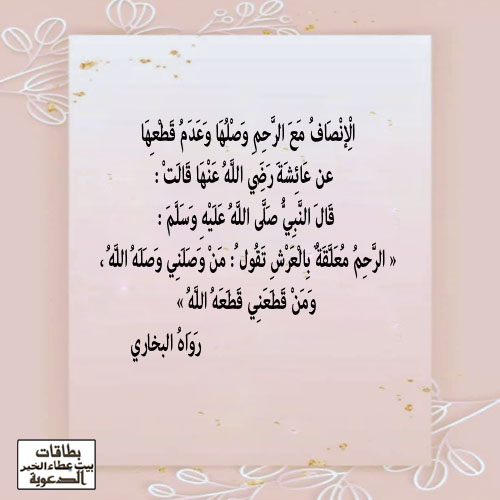 الْإِنْصَافُ مَعَ الرَّحِمِ وَصْلُهَا وَعَدَمُ قَطْعِهَا
عن عَائِشَةَ رَضِي اللَّهُ عَنْهَا قَالَتْ :
قَالَ النَّبِيُّ صَلَّى اللَّهُ عَلَيْهِ وَسَلَّمَ :
« الرَّحِمُ مُعَلَّقَةٌ بِالْعَرْشِ تَقُولُ : مَنْ وَصَلَنِي وَصَلَهُ اللَّهُ ،
وَمَنْ قَطَعَنِي قَطَعَهُ اللَّهُ »
رَوَاهُ البخاري
بطاقات
بيت عطاء الخير
الدعوية